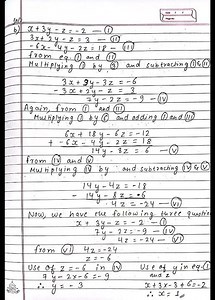 b) x + 3y - z = -2 — (I)
3x + 2y - z = 3 — (II)
-6x - 4y - 2z = 18 — (III)
from eq. (I) and (II)
Multiplying (I) by (3) and subtracting (I) & (II)
3x + 9y - 3z = -6
- 3x + 2y - z = 3
7y - 2z = -9 — (IV)
Again, from (I) and (III)
Multiplying (I) by 6 and adding (I) & (III)
6x + 18y - 6z = -12
+ -6x - 4y - 2z = 18
14y - 8z = 6 — (V)
from (IV) and (V)
Multiplying (IV) by and subtracting (IV) & (V)
14y - 4z = -18
14y - 8z = 6
4z = -24 — (VI)
Now, we have the following three
x + 3y - z = -2 — (I)
7y - 2z = -9 — (IV)
4z = -24 — (VI)
from (VI) 4z = -24
z = -6
Use of z = -6 in (IV)
7y - 2x-6 = -9
∴ y = -3
Use y in eq (I)
and z
x + 3x-3 + 6 = -2
∴ x = 1